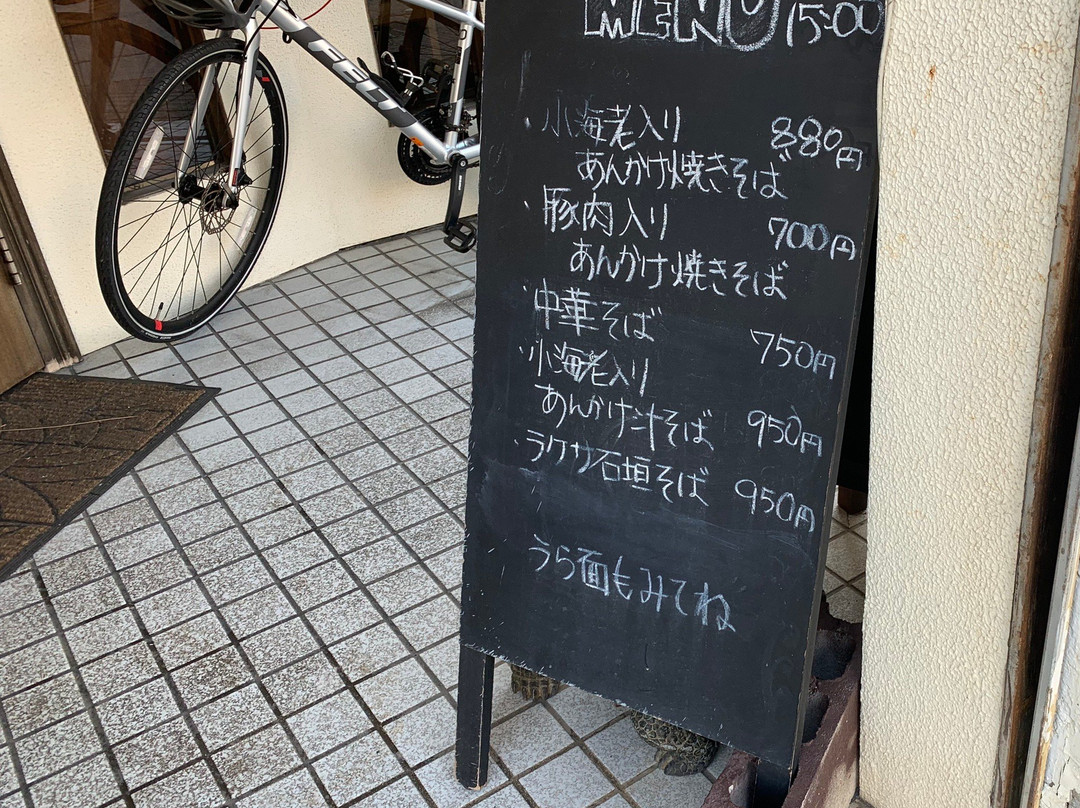 MENU 15:00
・小海老入り
あんかけ焼きそば 880円
・豚肉入り
あんかけ焼きそば 700円
・中華そば 750円
・小海老入り
あんかけ汁そば 950円
・ラクサ石垣そば 950円
うら面もみてね
FELT